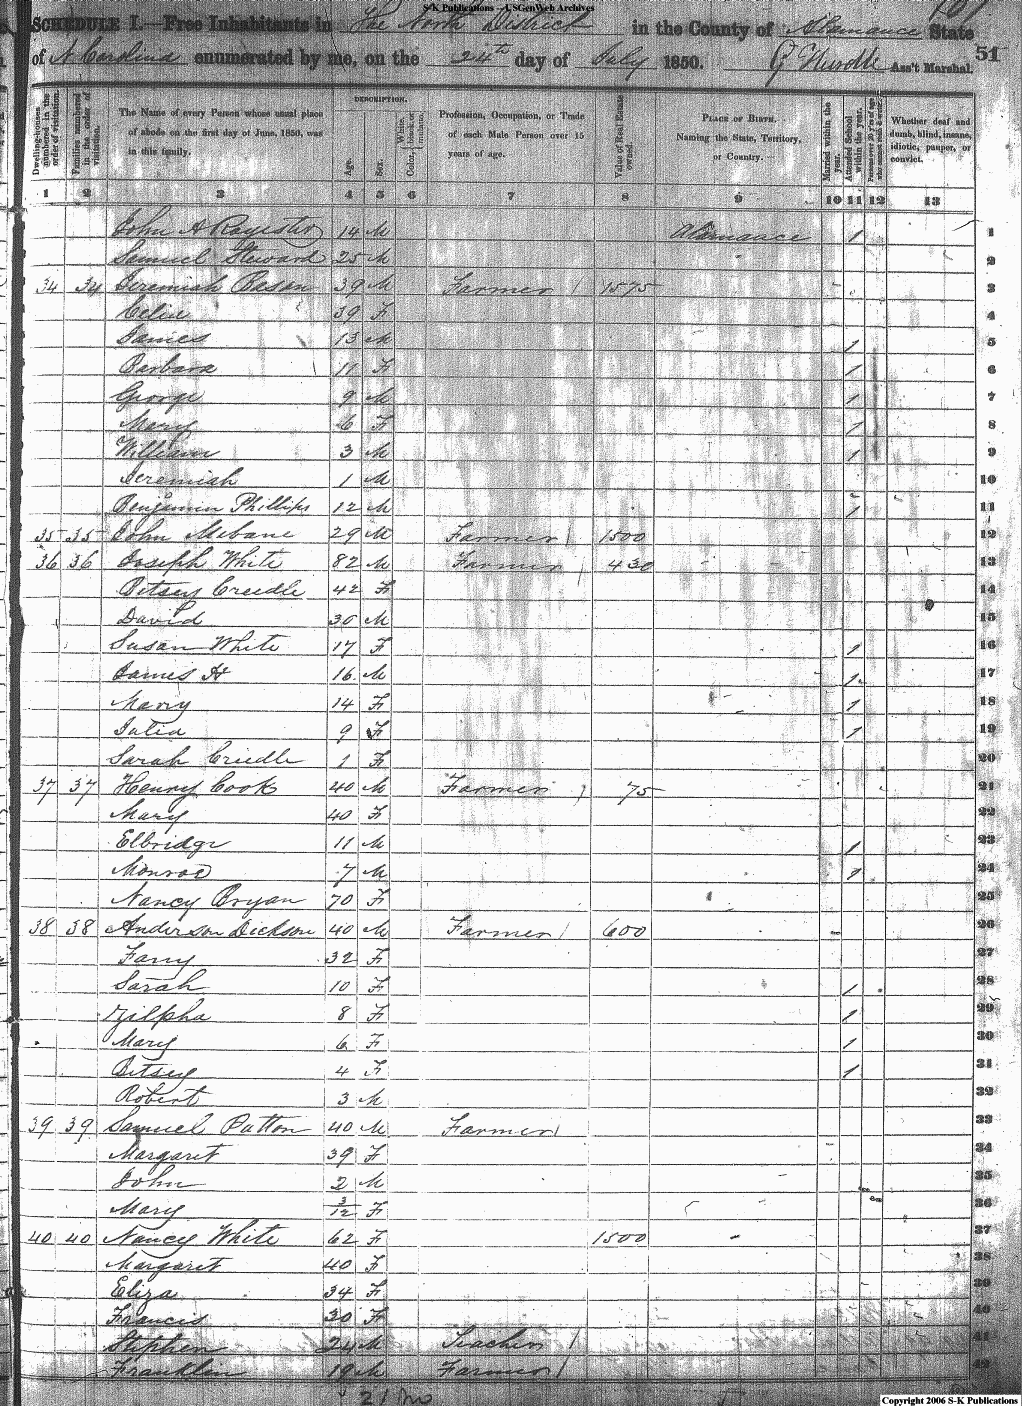 S-K Publications - USGenWeb Archives
SCHEDULE I.—Free Inhabitants in The North District in the County of Alamance State
of N Carolina enumerated by me, on the 24th day of July 1850. Ass't Marshal. 51
Dwelling-houses numbered in the order of visitation. Families numbered in the order of visitation. The Name of every Person whose usual place of abode on the first day of June, 1850, was in this family. DESCRIPTION. Age. Sex. White, Color, black, or mulatto. Profession, Occupation, or Trade of each Male Person over 15 years of age. Value of Real Estate owned. PLACE OF BIRTH. Naming the State, Territory, or Country. Married within the year. Attended School within the year. Persons over 20 y'rs of age who cannot read & write. Whether deaf and dumb, blind, insane, idiotic, pauper, or convict.
1 2 3 4 5 6 7 8 9 10 11 12 13
John A 14 M Alamance 1 1
Samuel Steward 25 M 2
34 34 Jeremiah Bason 39 M Farmer 1575 3
39 F 4
James 13 M 1 5
Barbara 11 F 1 6
George 9 M 1 7
Mary 6 F 1 8
William 3 M 1 9
Jeremiah 1 M 10
Benjamin Phillips 12 M 1 11
35 35 John Mebane 29 M Farmer 1500 12
36 36 Joseph White 82 M Farmer 430 13
Betsey Creedle 42 F 14
David 30 M 15
Susan White 17 F 1 16
James H 16 M 1 17
Mary 14 F 1 18
Julia 9 F 1 19
Sarah Creedle 1 F 20
37 37 Henry Cook 40 M Farmer 75 21
Mary 40 F 22
Elbridge 11 M 1 23
Monroe 7 M 1 24
Nancy Bryan 70 F 25
38 38 Anderson Dickson 40 M Farmer 600 26
Fany 32 F 27
Sarah 10 F 1 28
Zilpha 8 F 1 29
Mary 6 F 1 30
Betsey 4 F 1 31
Robert 3 M 32
39 39 Samuel Patton 40 M Farmer 33
Margaret 39 F 34
John 2 M 35
Mary 3/12 F 36
40 40 Nancy White 62 F 1500 37
Margaret 40 F 38
Eliza 34 F 39
Francis 30 F 40
Stephen 24 M Teacher 41
Franklin 19 M Farmer 42
21 M
Copyright 2006 S-K Publications